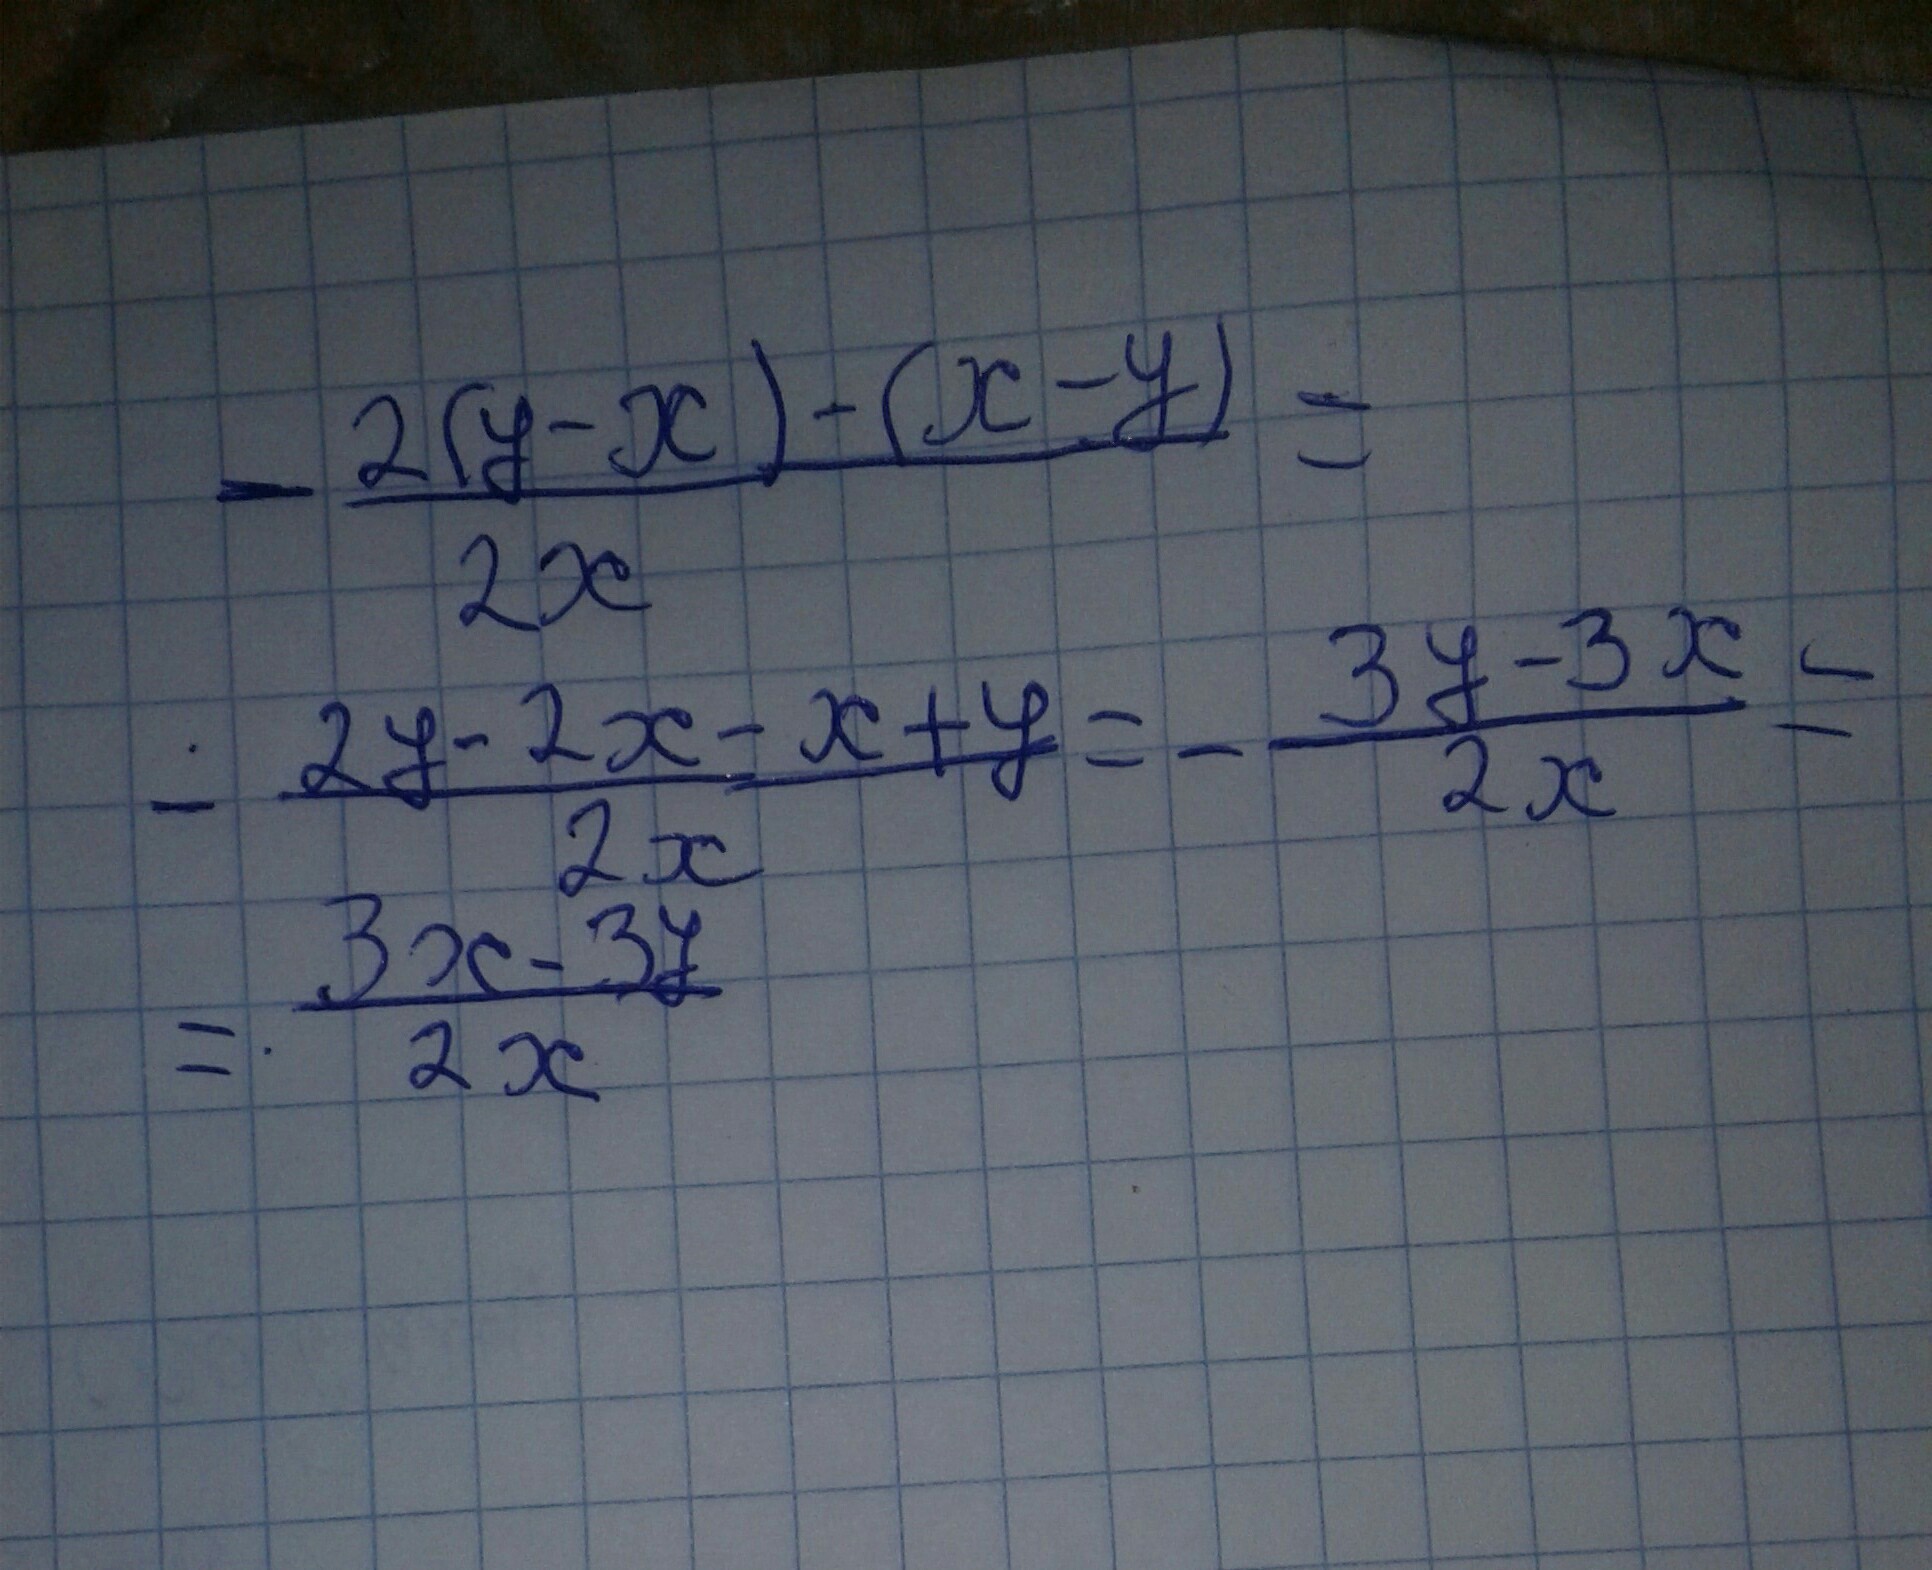 - 2(y-x)-(x-y) =
2x
- 2y-2x-x+y = - 3y-3x =
2x 2x
= 3x-3y
2x